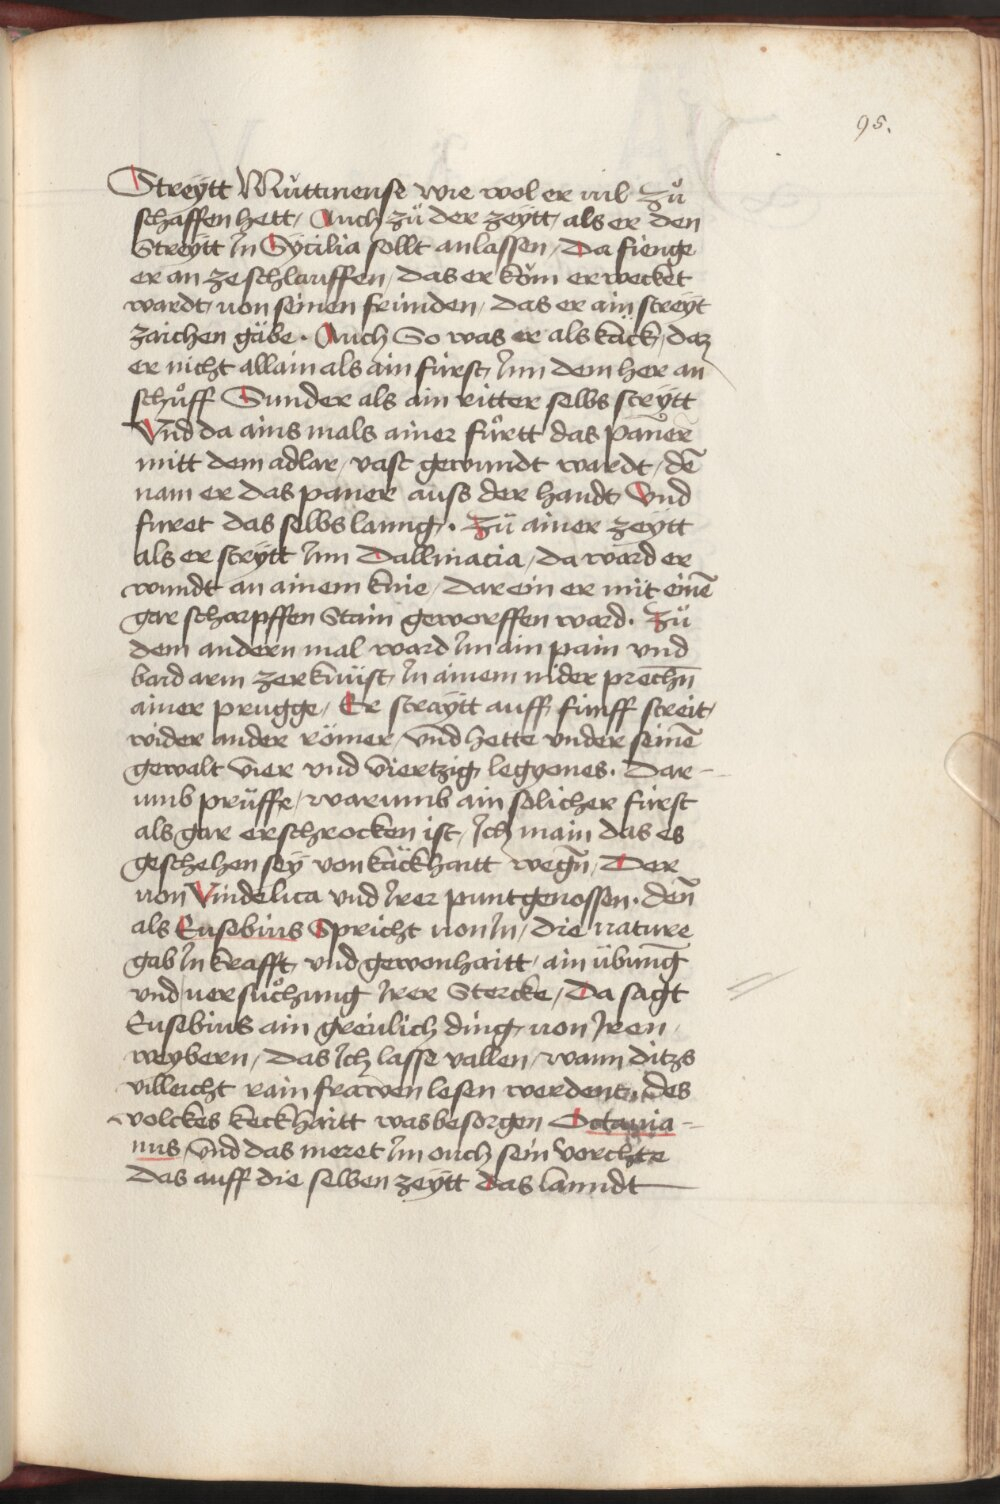 95.
Streÿtt Muttinense wie wol er vil zů
schaffen hett / Auch zů der zeÿtt / als er den
Streÿtt In Sÿcilia sollt anlassen / Da fienge
er an zeschlauffen / das er kom erwecket
wardt / von seinen frúnden / das er ain streÿt
zaichen gäbe · Auch So was er als käck / daz
er nicht allain als ain fúrst / Inn dem her an
schůff Sunder als ain ritter selbs streÿtt
Vnd da ains mals ainer fůrtt das paner
mitt dem adlar / vast gewundt wardt / dē
nam er das paner auss der handt Vnd
furet das selbs lanng · Zů ainer zeÿtt
als er streÿtt Inn Dallmacia / da ward er
wundt an ainem knie / dar ein er mit einē
gar scharpffen Stain geworffen ward · Zů
dem andern mal ward Im ain pain vnd
baid arm zerknúst / In ainem nider prechn̄
ainer prugge / Er straÿtt auff fúnff streit /
wider ander römer / vnd hette vnder seinē
gewalt vier vnd viertzig legÿones · Dar-
umb prúffe / warumb ain solicher fúrst
als gar erschrocken ist / Ich main das es
geschehen seÿ von käckhaitt wegn̄ / Der
von Vindelica vnd Irer puntgenossen · den̄
als Eusebius Spricht von In / die nature
gab In krafft / vnd gewonhaitt / ain übunḡ
vnd versůchung Irer Stercke / Da sagt
Eusebius ain greulich ding / von Iren
weybern / das Ich lasse vallen / wann ditzs
villeicht rain frawen lesen werdent / des
volckes keckhaitt was besorgen Octauia-
nus / vnd das meret Im ouch sein vorchte
Das auff die selben zeÿtt das lanndt